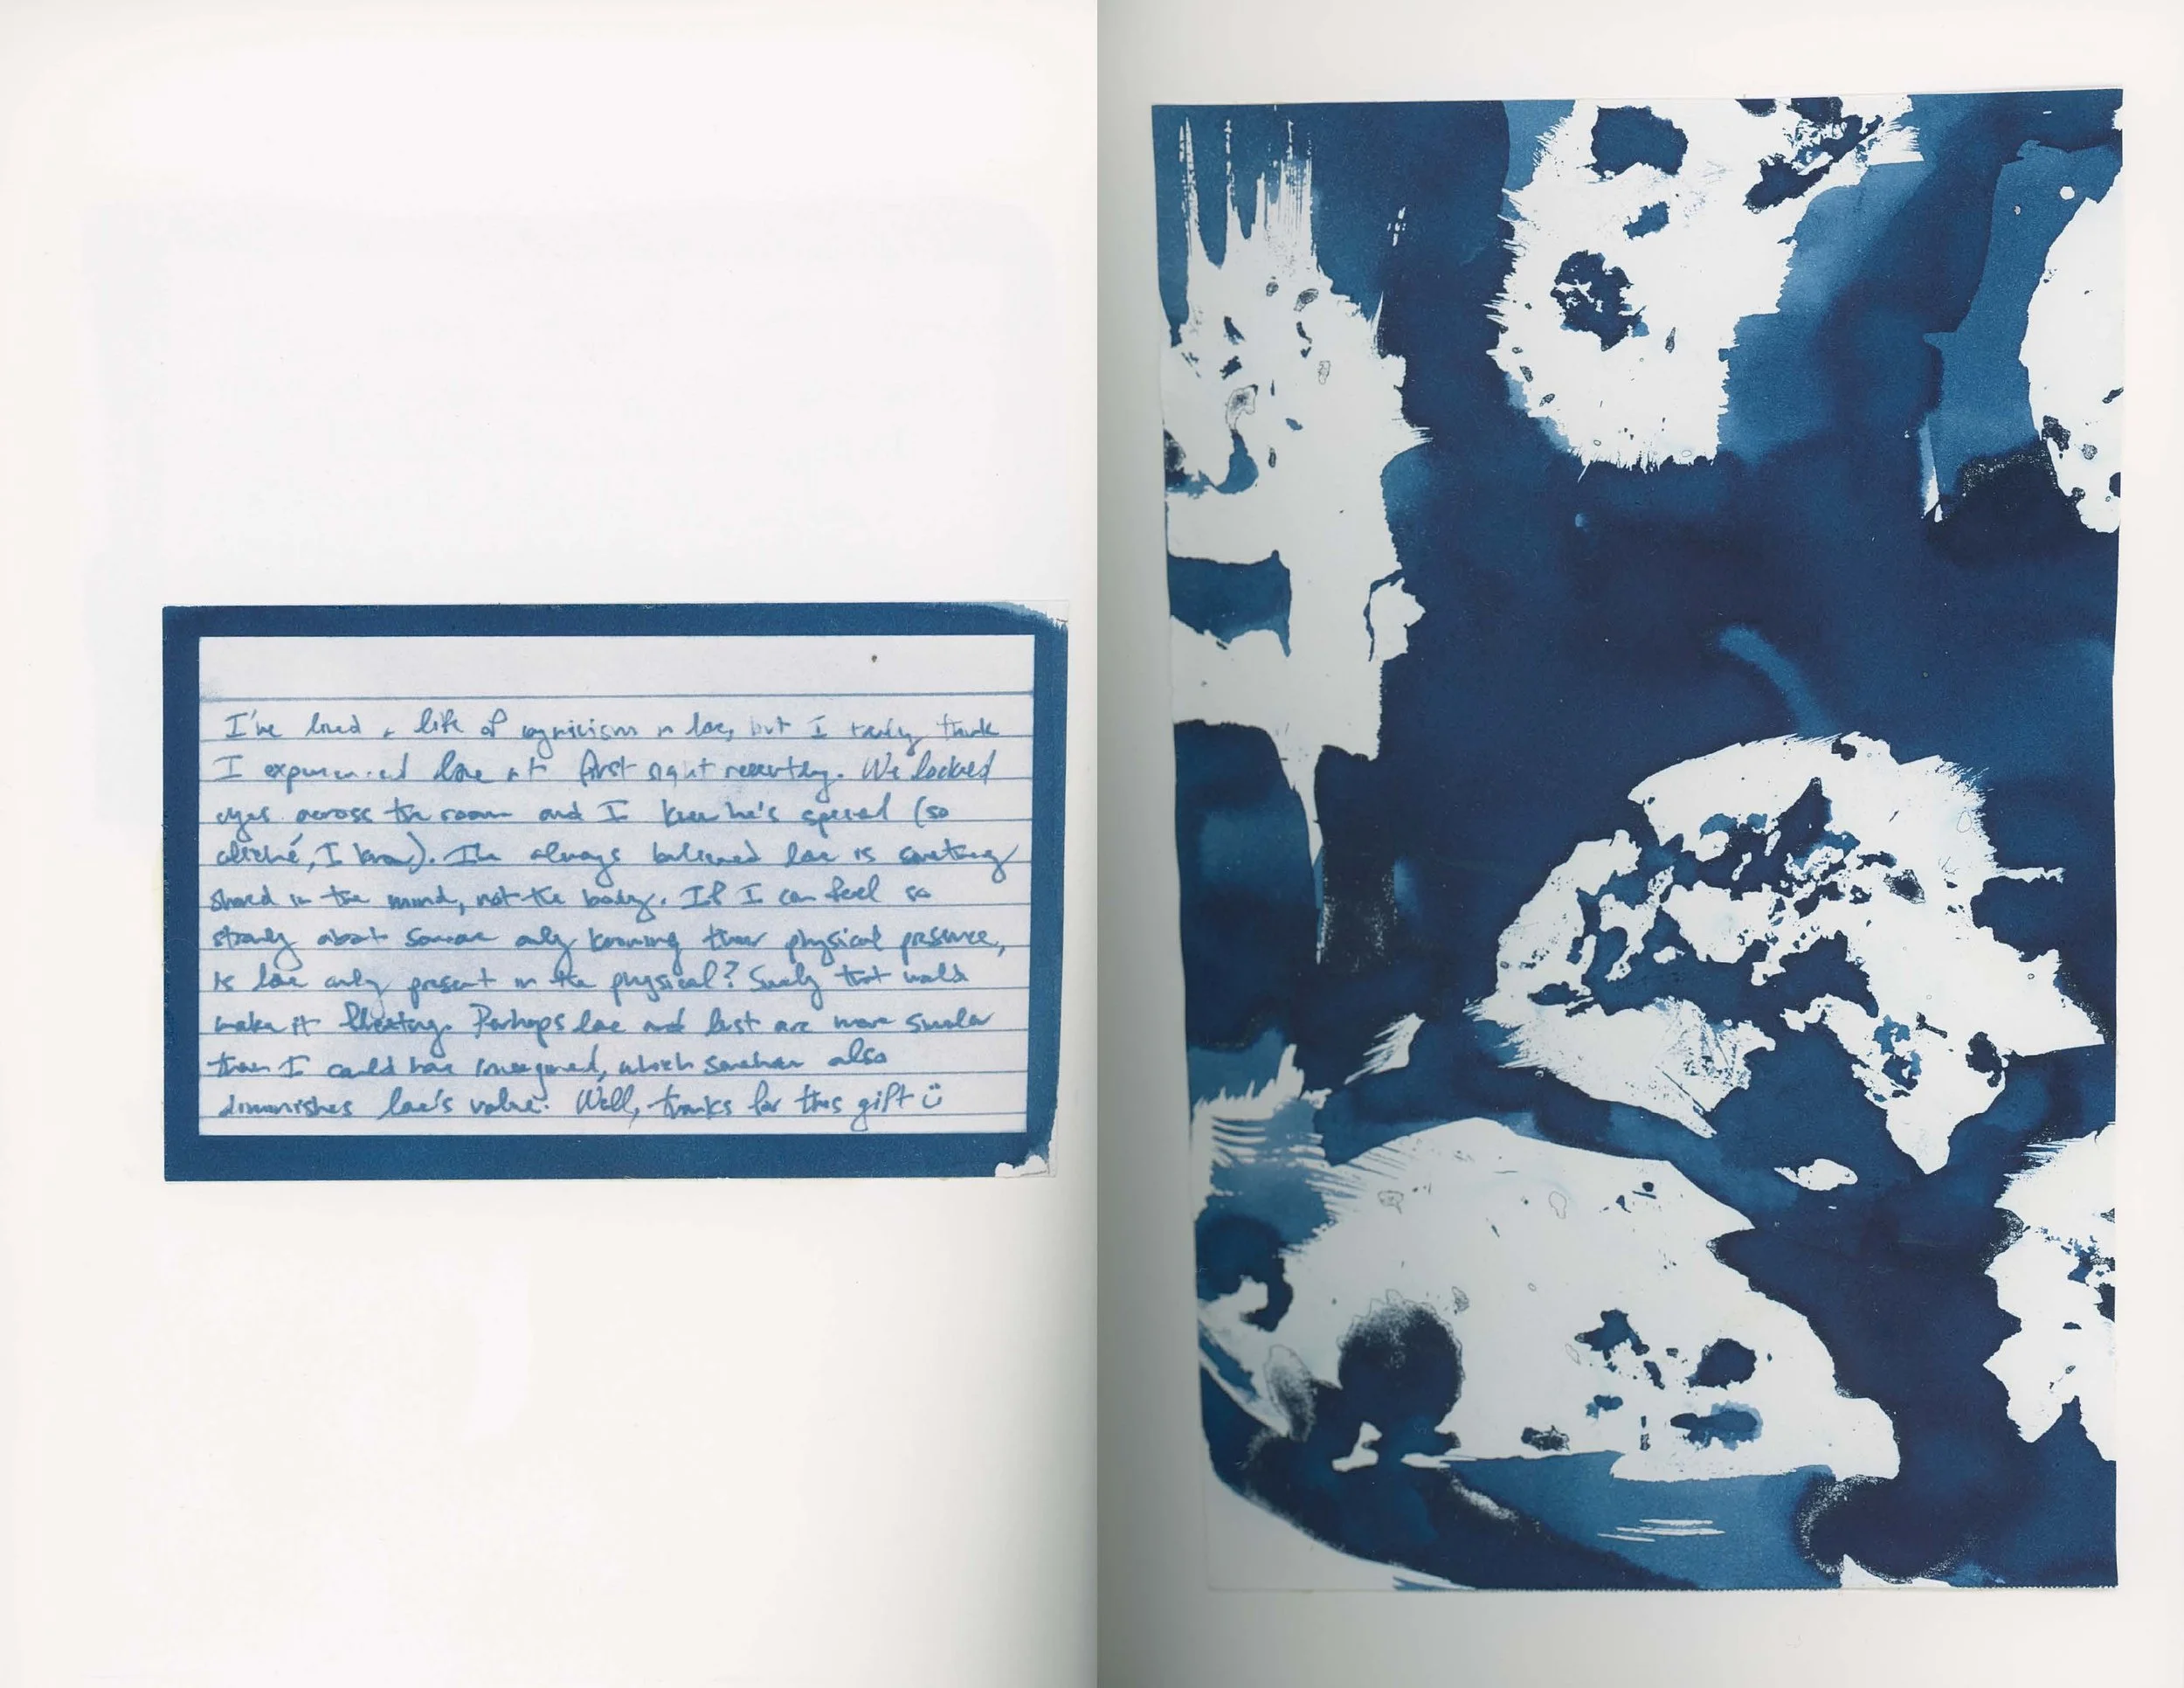 I've lived a life of cynicism in love, but I truly think
I experienced love at first sight recently. We locked
eyes across the room and I knew he's special (so
cliché, I know). I've always believed love is something
shared in the mind, not the body. If I can feel so
strongly about someone only knowing their physical presence,
is love only present in the physical? Surely that would
make it fleeting. Perhaps love and lust are more similar
than I could have imagined, which somehow also
diminishes love's value. Well, thanks for this gift ü